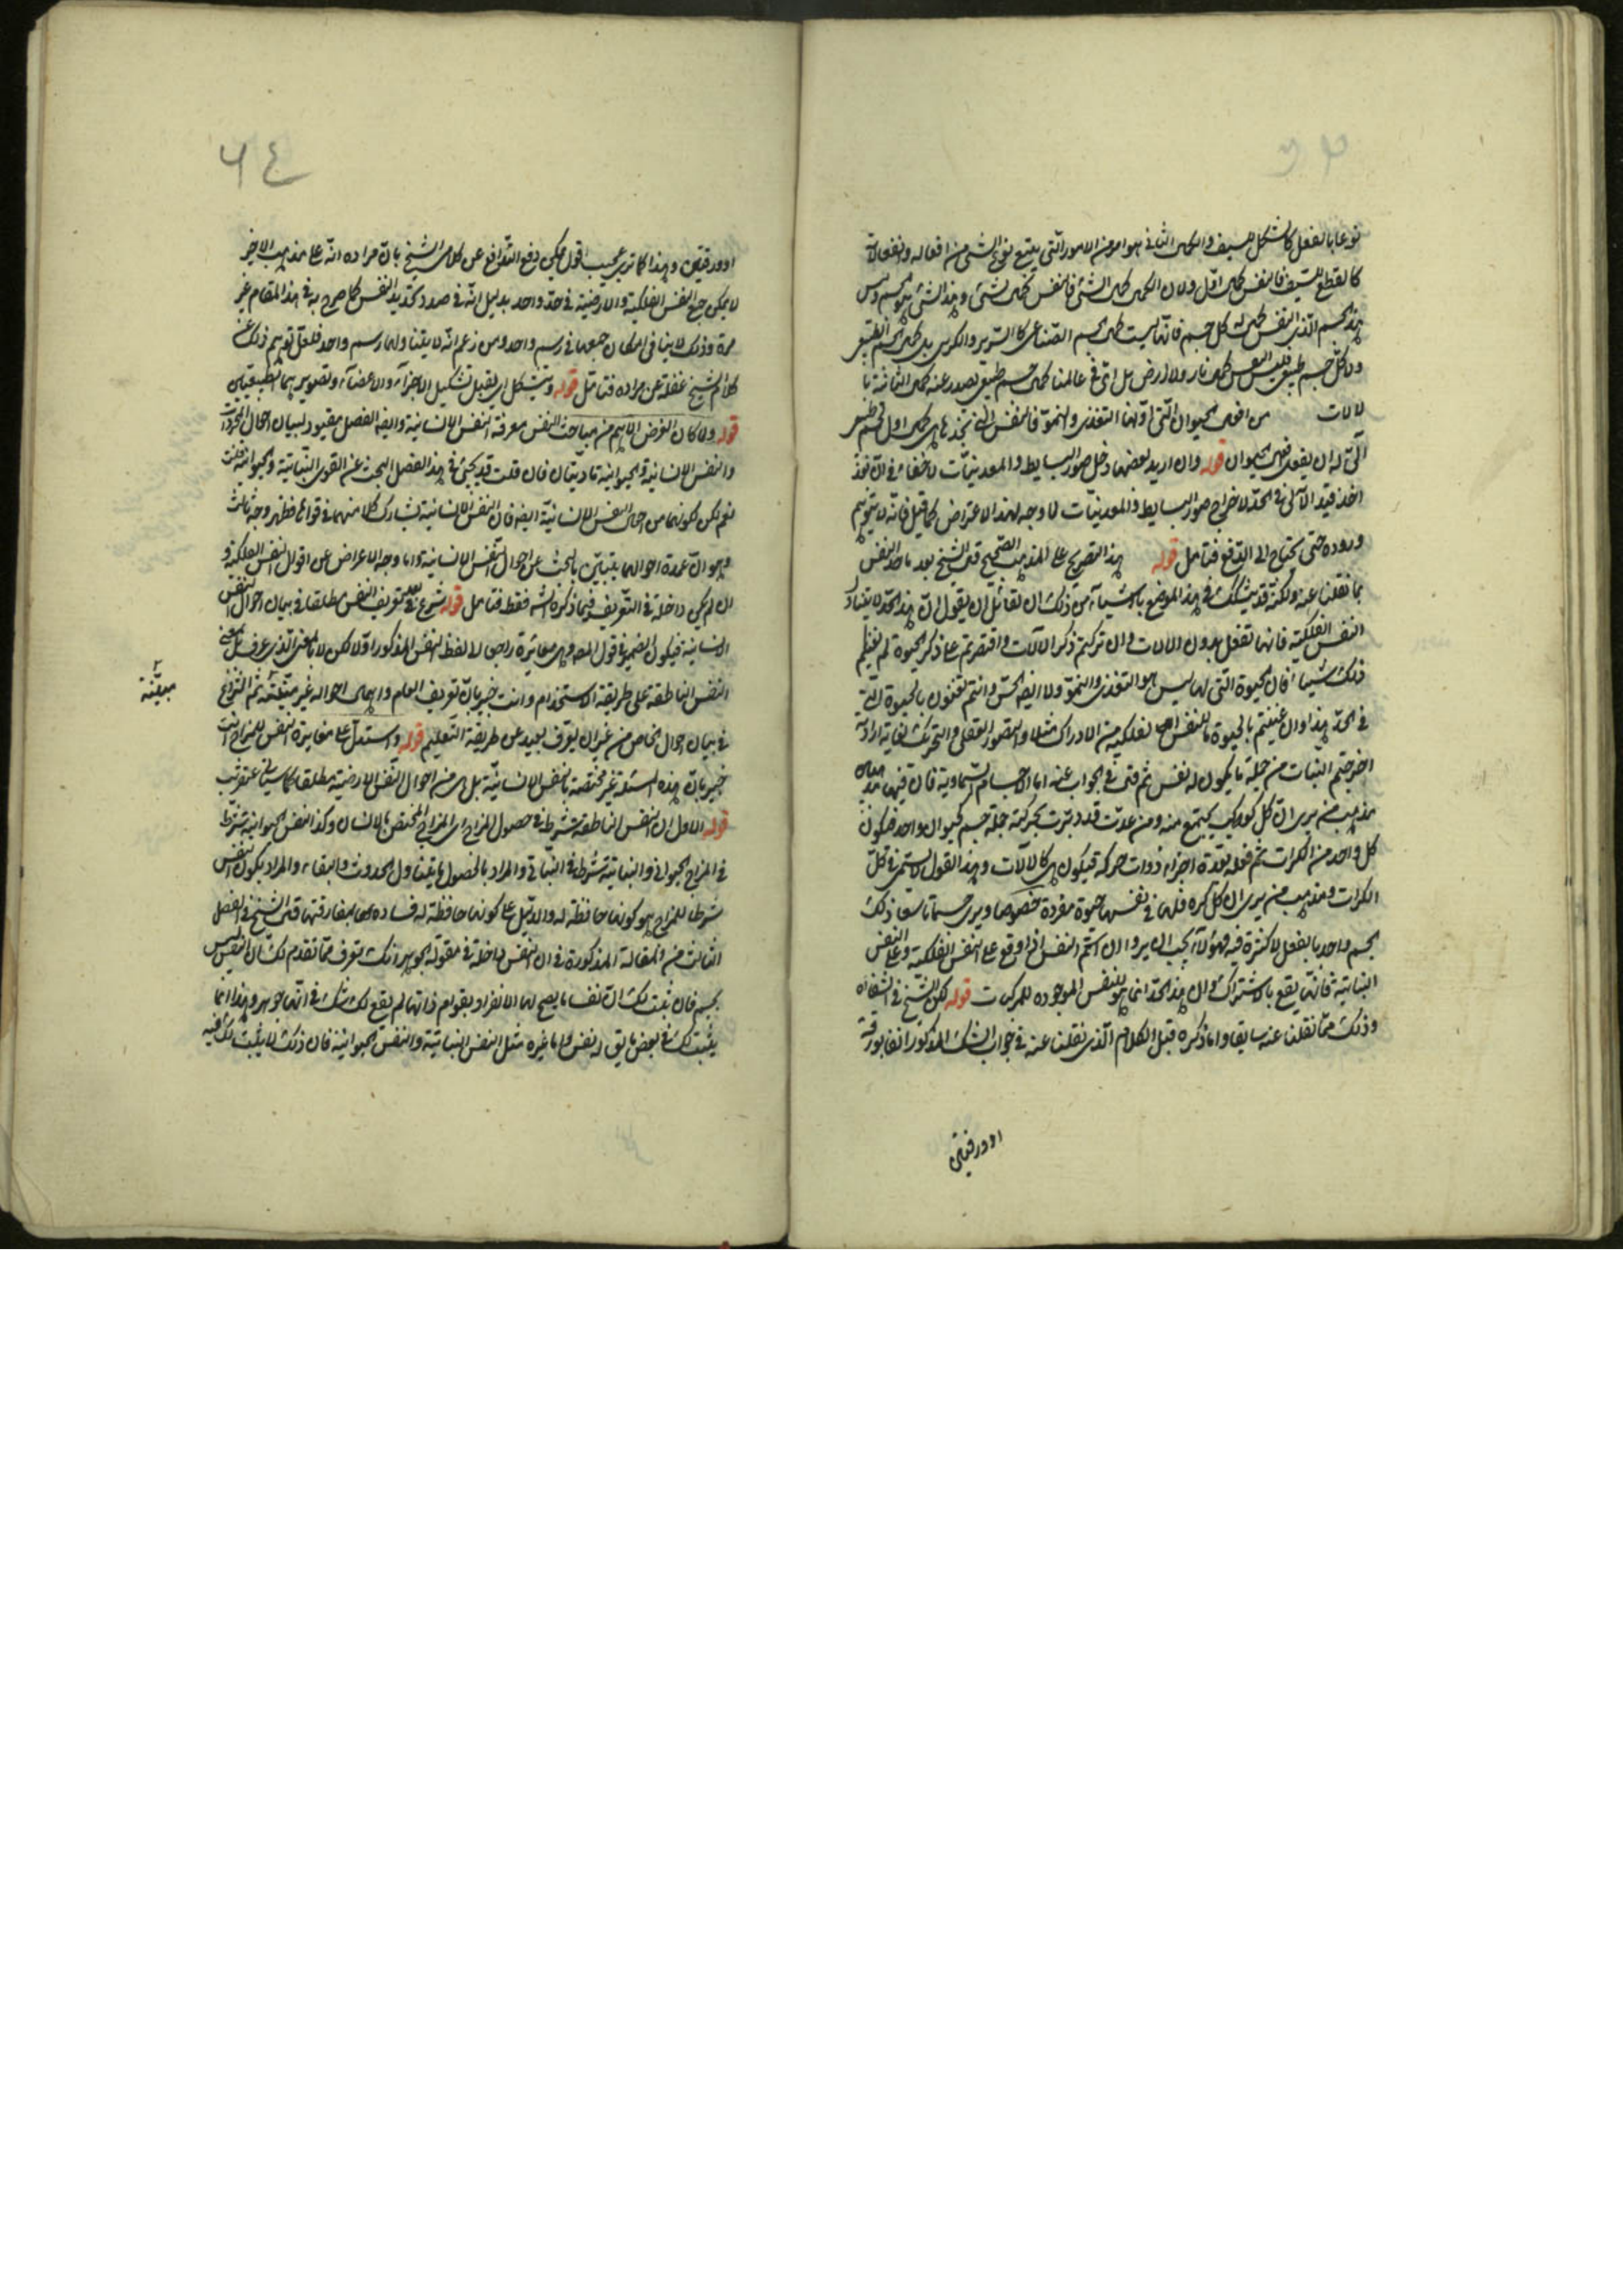 نوعا بالفعل كالشكل للسيف والكمال الثانى هو امر من الامور التى يتبع نوع الشئ من افعاله وانفعالاته
كالقطع للسيف فالنفس كمال اول ولان الكمال كمال الشئ فالنفس كمال لشئ وهذا الشئ هو الجسم وليس
هذا الجسم الذى النفس كماله كل جسم فانها ليست كمال الجسم الصناعى كالسرير والكرسى بل كمال الجسم الطبيعى
ولا كل جسم طبيعى فليس النفس كمال نار ولا ارض بل انها فى عالمنا كمال جسم طبيعى يصدر عنه كماله الثانية با
لالات من افعال الحيوان التى اولها التغذى والنمو فالنفس التى نحدها هى كمال اول لجسم طبيعى
آلى له ان يفعل افعال الحيوان قوله وان اريد بعضها دخل صور البسايط والمعدنيات لا خفاء فى انه نوخذ
اخذ قيد الآلى فى الحد لاخراج صور البسايط والمعدنيات لا وجه لهذا الاعتراض كما قيل فانه لا يتوهم
وروده حتى يحتاج الى الدفع فتامل قوله هذا التصريح على المذهب الصحيح قال الشيخ بعد ما حد النفس
بما نقلنا عنه ولكنه قد يتشكك فى هذا الموضع باشياء من ذلك ان لقائل ان يقول ان هذا الحد لا يتناول
النفس الفلكية فانها تفعل بدون الالات وان تركتم ذكر الالات واقتصرتم على ذكر الحيوة لم يغنكم
ذلك شيئا فان الحيوة التى لها ليس هو التغذى والنمو ولا ايضا الحس وانتم تعنون بالحيوة التى
فى الحد هذا وان عنيتم بالحيوة ما للنفس الفلكية من الادراك مثلا والتصور العقلى والتحريك لغاية ارادية
اخرجتم النبات من جملة ما يكون له نفس ثم قال فى الجواب عنه اما الاجسام السماوية فان فيها مذهبين
مذهب من يرى ان كل كوكب يجتمع منه ومن عدة كرات قد دبرت بحركته جملة جسم كحيوان واحد فيكون
كل واحد من الكرات يتم فعله بعدة اجزاء ذوات حركة فيكون هى كالالات وهذا القول لا يستمر فى كل
الكرات ومذهب من يرى ان كل كرة فلها فى نفسها حيوة مفردة خصوصا ويرى جسما تاسعا ذلك
الجسم واحد بالفعل لا كثرة فيه فهؤلاء يجب ان يروا ان اسم النفس اذا وقع على النفس الفلكية وعلى النفس
النباتية فانما يقع بالاشتراك وان هذا الحد انما هو للنفس الموجوده للمركبات قوله لكن الشيخ فى الشفاء
وذلك مما نقلنا عنه سابقا واما ذكره قبل الكلام الذى نقلنا عنه فى جواب الشك المذكور انفا بورقة
او ورقتين
٦٤
او ورقتين وهذا كما ترى عجيب اقول يمكن دفع التدافع عن كلامى الشيخ بان مراده انه على مذهب الاخير
لا يمكن جمع النفس الفلكية والارضية فى حد واحد بدليل انه فى صدد تحديد النفس كما صرح به فى هذا المقام غير
مرة وذلك لا ينافى امكان جمعها فى رسم واحد ومن زعم انه لا يتناولها رسم واحد فلعل توهم ذلك عن
كلام الشيخ غفلة عن مراده فتامل قوله ويتشكل اى يقبل تشكيل الاجزاء والاعضاء وتصويرهما الطبيعيان
قوله ولما كان الغرض الاهم من مباحث النفس معرفة النفس الانسانية وايضا الفصل معقود لبيان احوال المجردات
والنفس الانسانية والحيوانية ماديتان فان قلت قد يجئ فى هذا الفصل البحث عن القوى النباتية والحيوانية قلت
نعم لكن لكونها من احوال النفس الانسانية ايضا فان النفس الانسانية تشارك كلا منهما فى قواها فظهر وجه ثالث
وهو ان عمدة احوالهما يتبين بالبحث عن احوال النفس الانسانية واما وجه الاعراض عن احوال النفس الفلكية و
ان لم يكن داخلة فى التعريف فيما ذكره الش فقط فتامل قوله شرع بعد تعريف النفس مطلقا فى بيان احوال النفس
الانسانية فيكون الضمير فى قول المصه وهى مغايرة راجعا الى لفظ النفس المذكور اولا لكن لا بالمعنى الذى عرف بل بمعنى
النفس الناطقة على طريقة الاستخدام وانت خبير بان تعريف العام واهمال احواله غير مبينة ثم الشروع
مبينة
فى بيان احوال الخاص من غير ان يعرف بعيد عن طريقة التعليم قوله واستدل على مغايرة النفس للمزاج انت
خبير بان هذه المسئلة غير مختصة بالنفس الانسانية بل هى من احوال النفس الارضية مطلقا كما سياتى عنقريب
قوله الاول ان النفس الناطقة شرط فى حصول المزاج اى المزاج المختص بالانسان وكذا النفس الحيوانية شرط
فى المزاج الحيوانى والنباتية شرط فى النباتى والمراد بالحصول ما يتناول الحدوث والبقاء والمراد بكون النفس
شرطا للمزاج هو كونها حافظة له والدليل على كونها حافظة له فساده بمفارقتها قال الشيخ فى الفصل
الثالث من المقالة المذكورة فى ان النفس داخلة فى مقولة الجوهر انك تعرف مما تقدم لك ان النفس ليس
بجسم فان ثبت لك ان نفسا ما يصح لها الانفراد بقوام ذاتها لم يقع لك شك فى انها جوهر وهذا انما
يثبت لك فى بعض ما يق له نفس واما غيره مثل النفس النباتية والنفس الحيوانية فان ذلك لا يثبت لك فيه